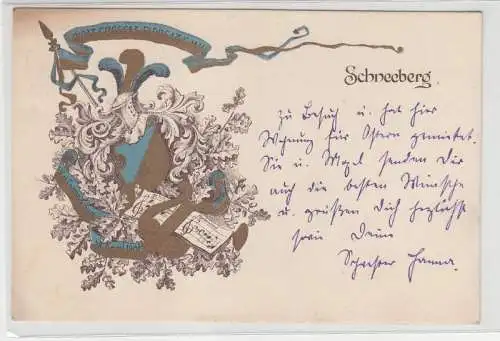 Schneeberg
zu Besuch u. hat hier
Wohnung für Ostern gemietet.
Sie u. Mogel senden Dir
auch die besten Wünsche
u. grüßen Dich herzlichst
sowie Deine
Schwester Hanna.